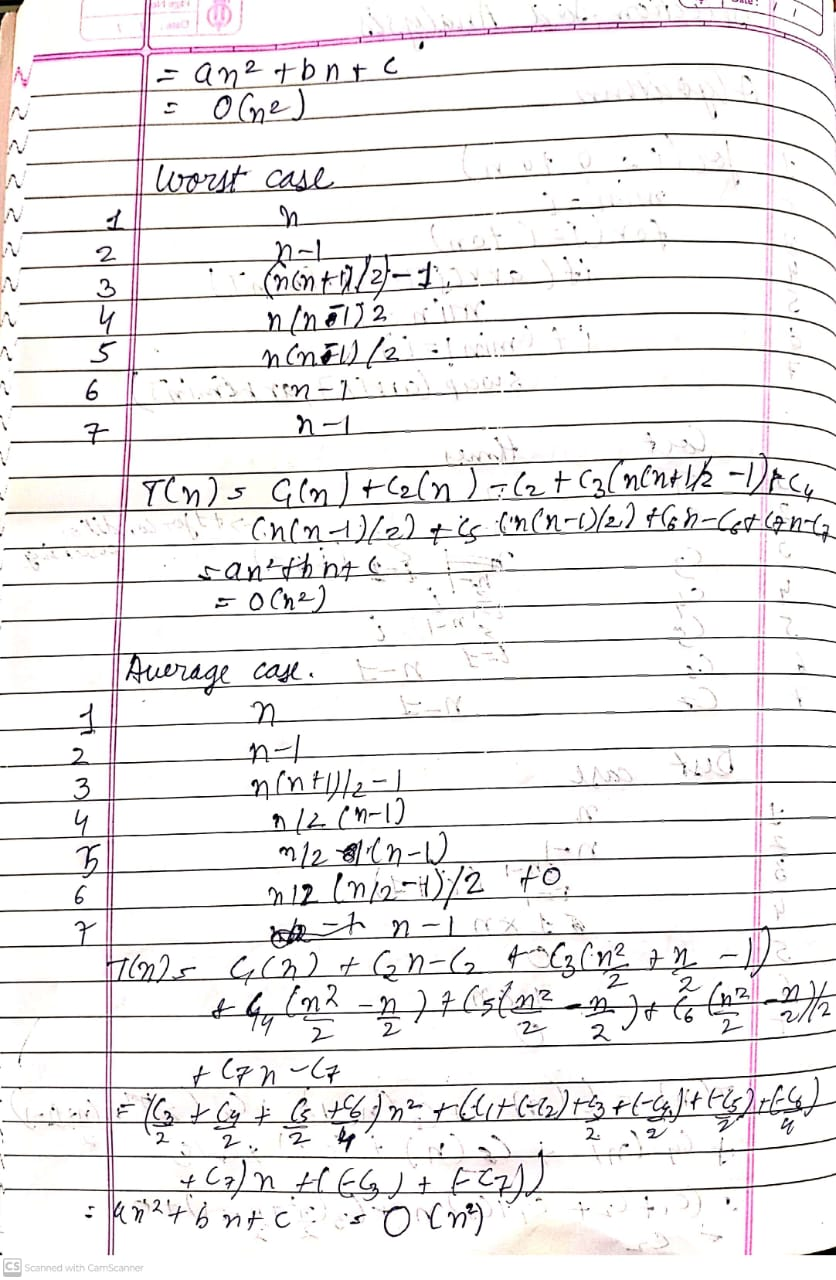 = an² + bn + c
= O(n²)
Worst case
1 n
2 n-1
3 (n(n+1)/2)-1
4 n(n-1)2
5 n(n-1)/2
6 n-1
7 n-1
T(n) = C₁(n) + C₂(n) - C₂ + C₃(n(n+1)/2 -1) + C₄
(n(n-1)/2) + C₅ (n(n-1)/2) + C₆n - C₆ + C₇n - C₇
= an² + bn + c
= O(n²)
Average case.
1 n
2 n-1
3 n(n+1)/2-1
4 n/2 (n-1)
5 n/2 (n-1)
6 n/2 (n/2-1)/2 +0
7 n-1
T(n) = C₁(n) + C₂n - C₂ + C₃(n²/2 + n/2 - 1)
+ C₄ (n²/2 - n/2) + C₅(n²/2 - n/2) + C₆ (n²/2 - n/2)/2
+ C₇n - C₇
= (C₃/2 + C₄/2 + C₅/2 + C₆/4) n² + (C₁ + (-C₂) + C₃/2 + (-C₄)/2 + (-C₅)/2 + (-C₆)/4
+ C₇)n + ((-C₃) + (-C₇))
= an² + bn + c = O(n²)
CS Scanned with CamScanner